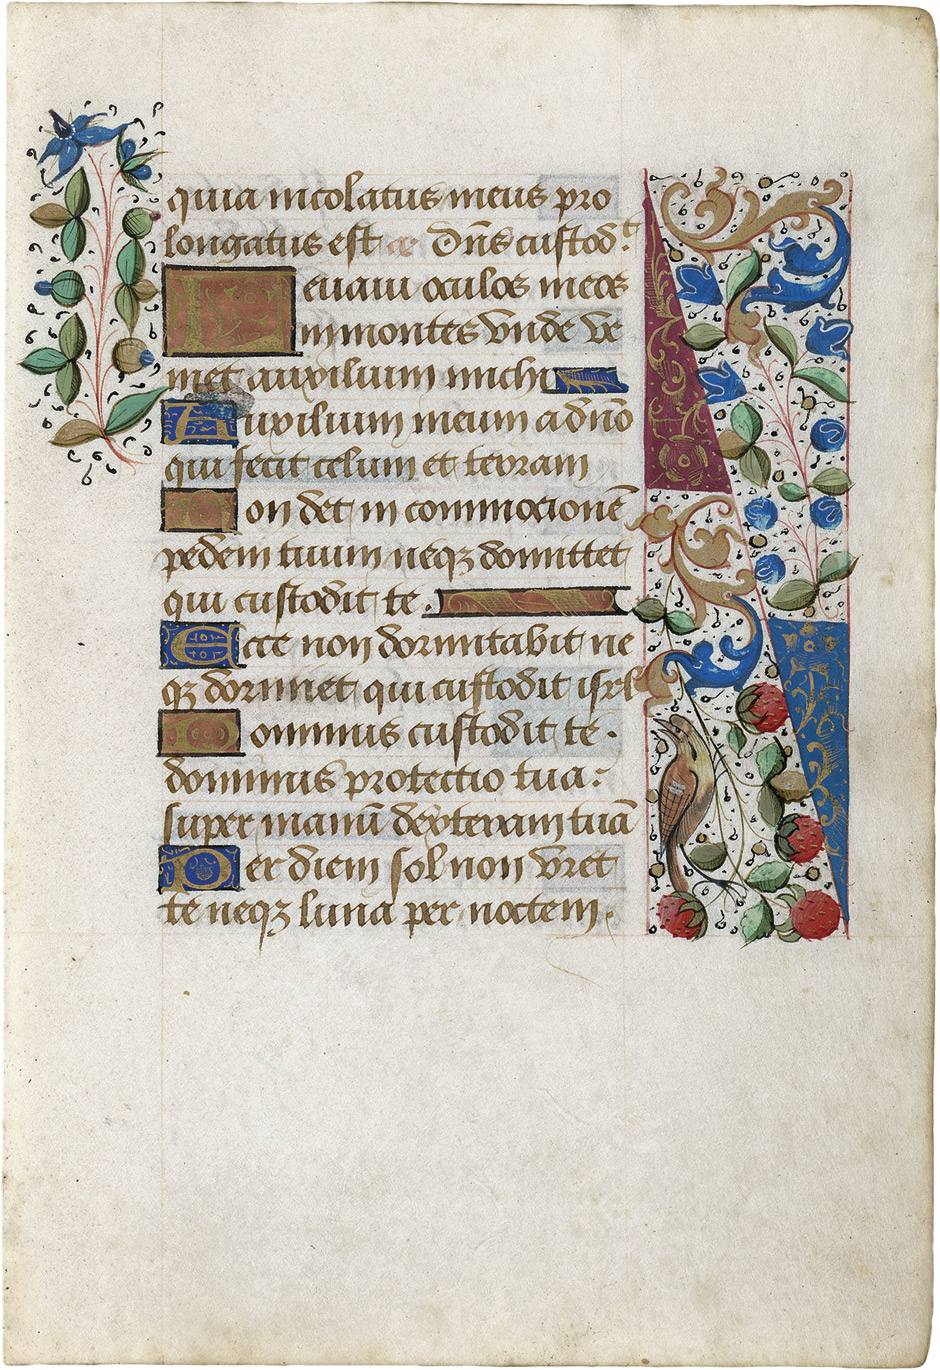 quia incolatus meus pro
longatus est a͠e Dn̄s custod.t
Leuaui oculos meos
in montes vnde ve
niet auxilium michi
Auxilium meum a dn̄o
qui fecit celum et terram
Non det in commocionē
pedem tuum neqꝫ dormitet
qui custodit te .
Ecce non dormitabit ne
qꝫ dormiet qui custodit isrl
Dominus custodit te .
dominus protectio tua :
super manū dexteram tuā
Per diem sol non vret
te neqꝫ luna per noctem .